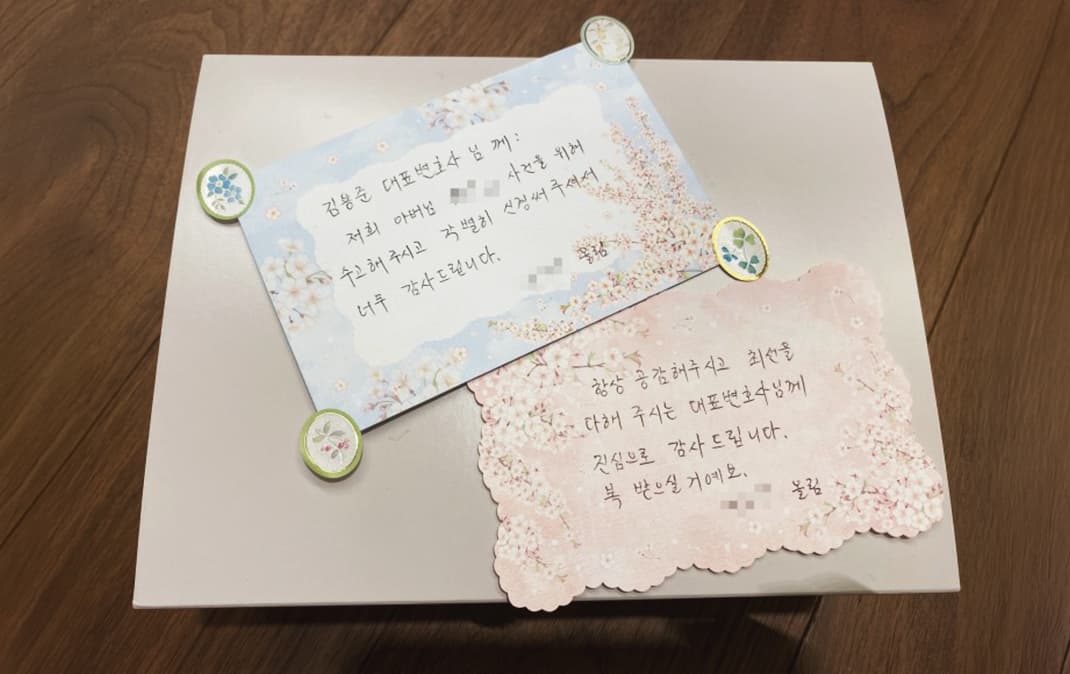 김용준 대표변호사 님 께:
저희 아버님 사건을 위해
수고해 주시고 각별히 신경써 주셔서
너무 감사드립니다.
올림
항상 공감해주시고 최선을
다해 주시는 대표변호사님께
진심으로 감사 드립니다.
복 받으실 거예요.
올림